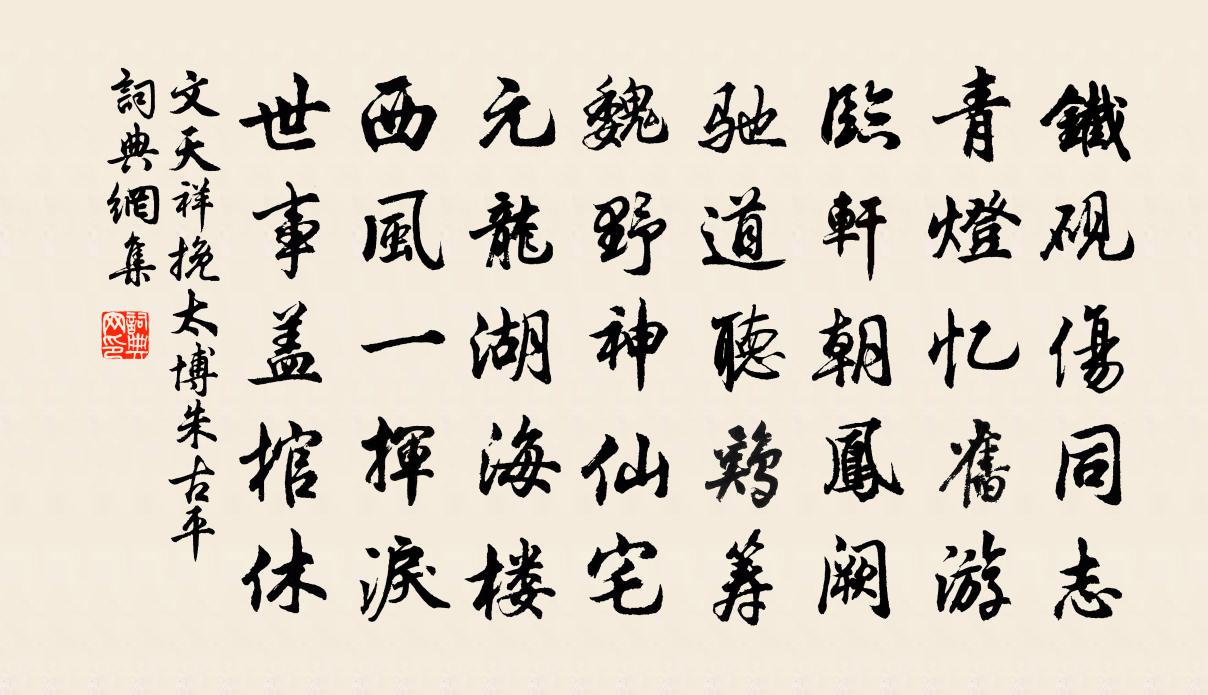 鐵硯傷同志
青燈忆舊游
臨軒朝鳳闕
馳道聽鷄筹
魏野神仙宅
元龍湖海楼
西風一揮淚
世事盖棺休
文天祥挽太博朱古平
詞典網集
詞典网印